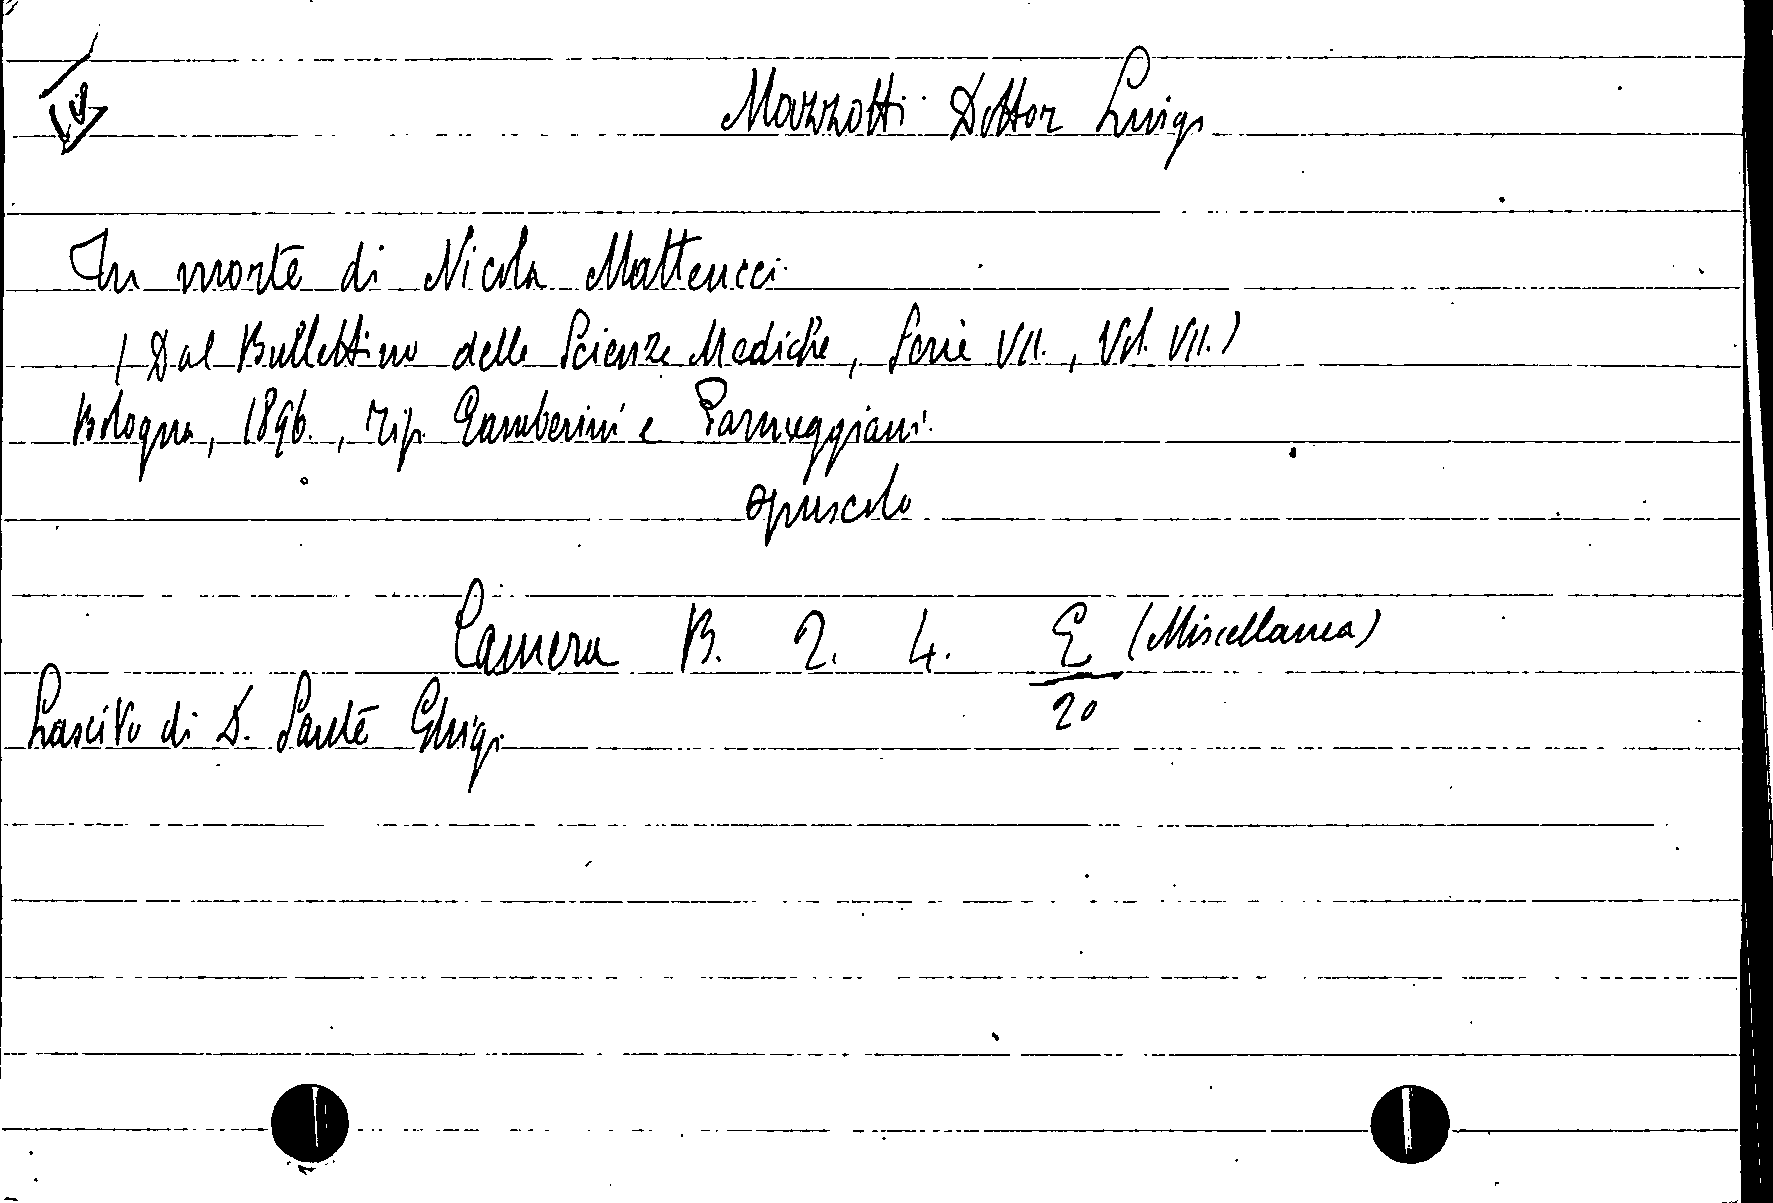 Mazzotti Dottor Luigi
In morte di Nicola Matteucci
(Dal Bullettino delle Scienze Mediche, Serie VII., Vol. VII.)
Bologna, 1896., Tip. Gamberini e Parmeggiani.
opuscolo
Camera B. 2. 4. E (Miscellanea)
20
Lascito di D. Sante Ghigi